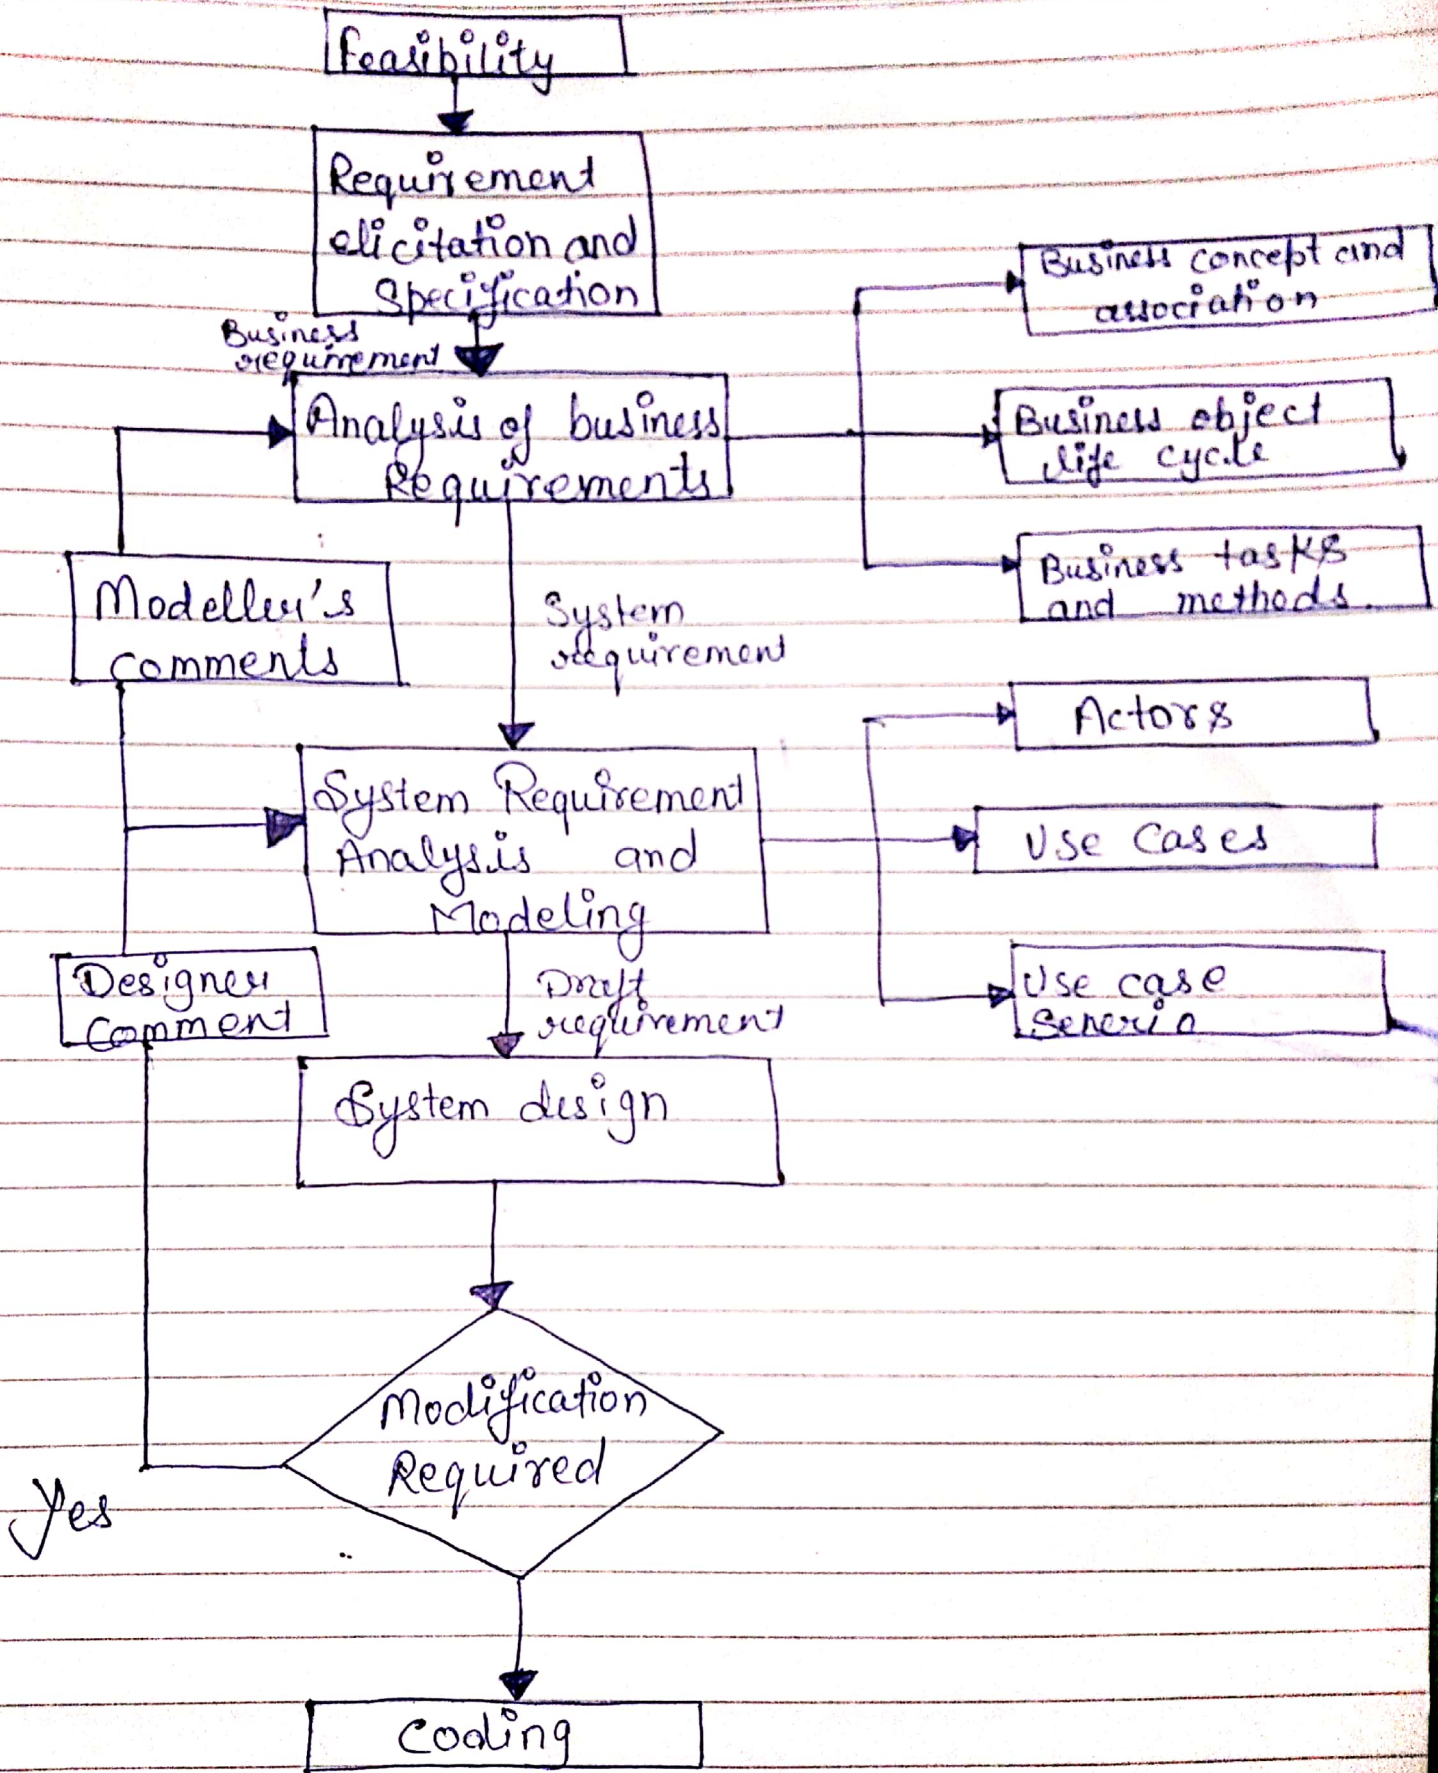 Feasibility
Requirement
elicitation and
Specification
Business
requirement
Analysis of business
Requirements
Business concept and
association
Business object
life cycle
Business tasks
and methods.
Modeller's
comments
System
requirement
System Requirement
Analysis and
Modeling
Actors
Use Cases
Use case
Senerio
Designer
Comment
Draft
requirement
System design
Modification
Required
Yes
Coding